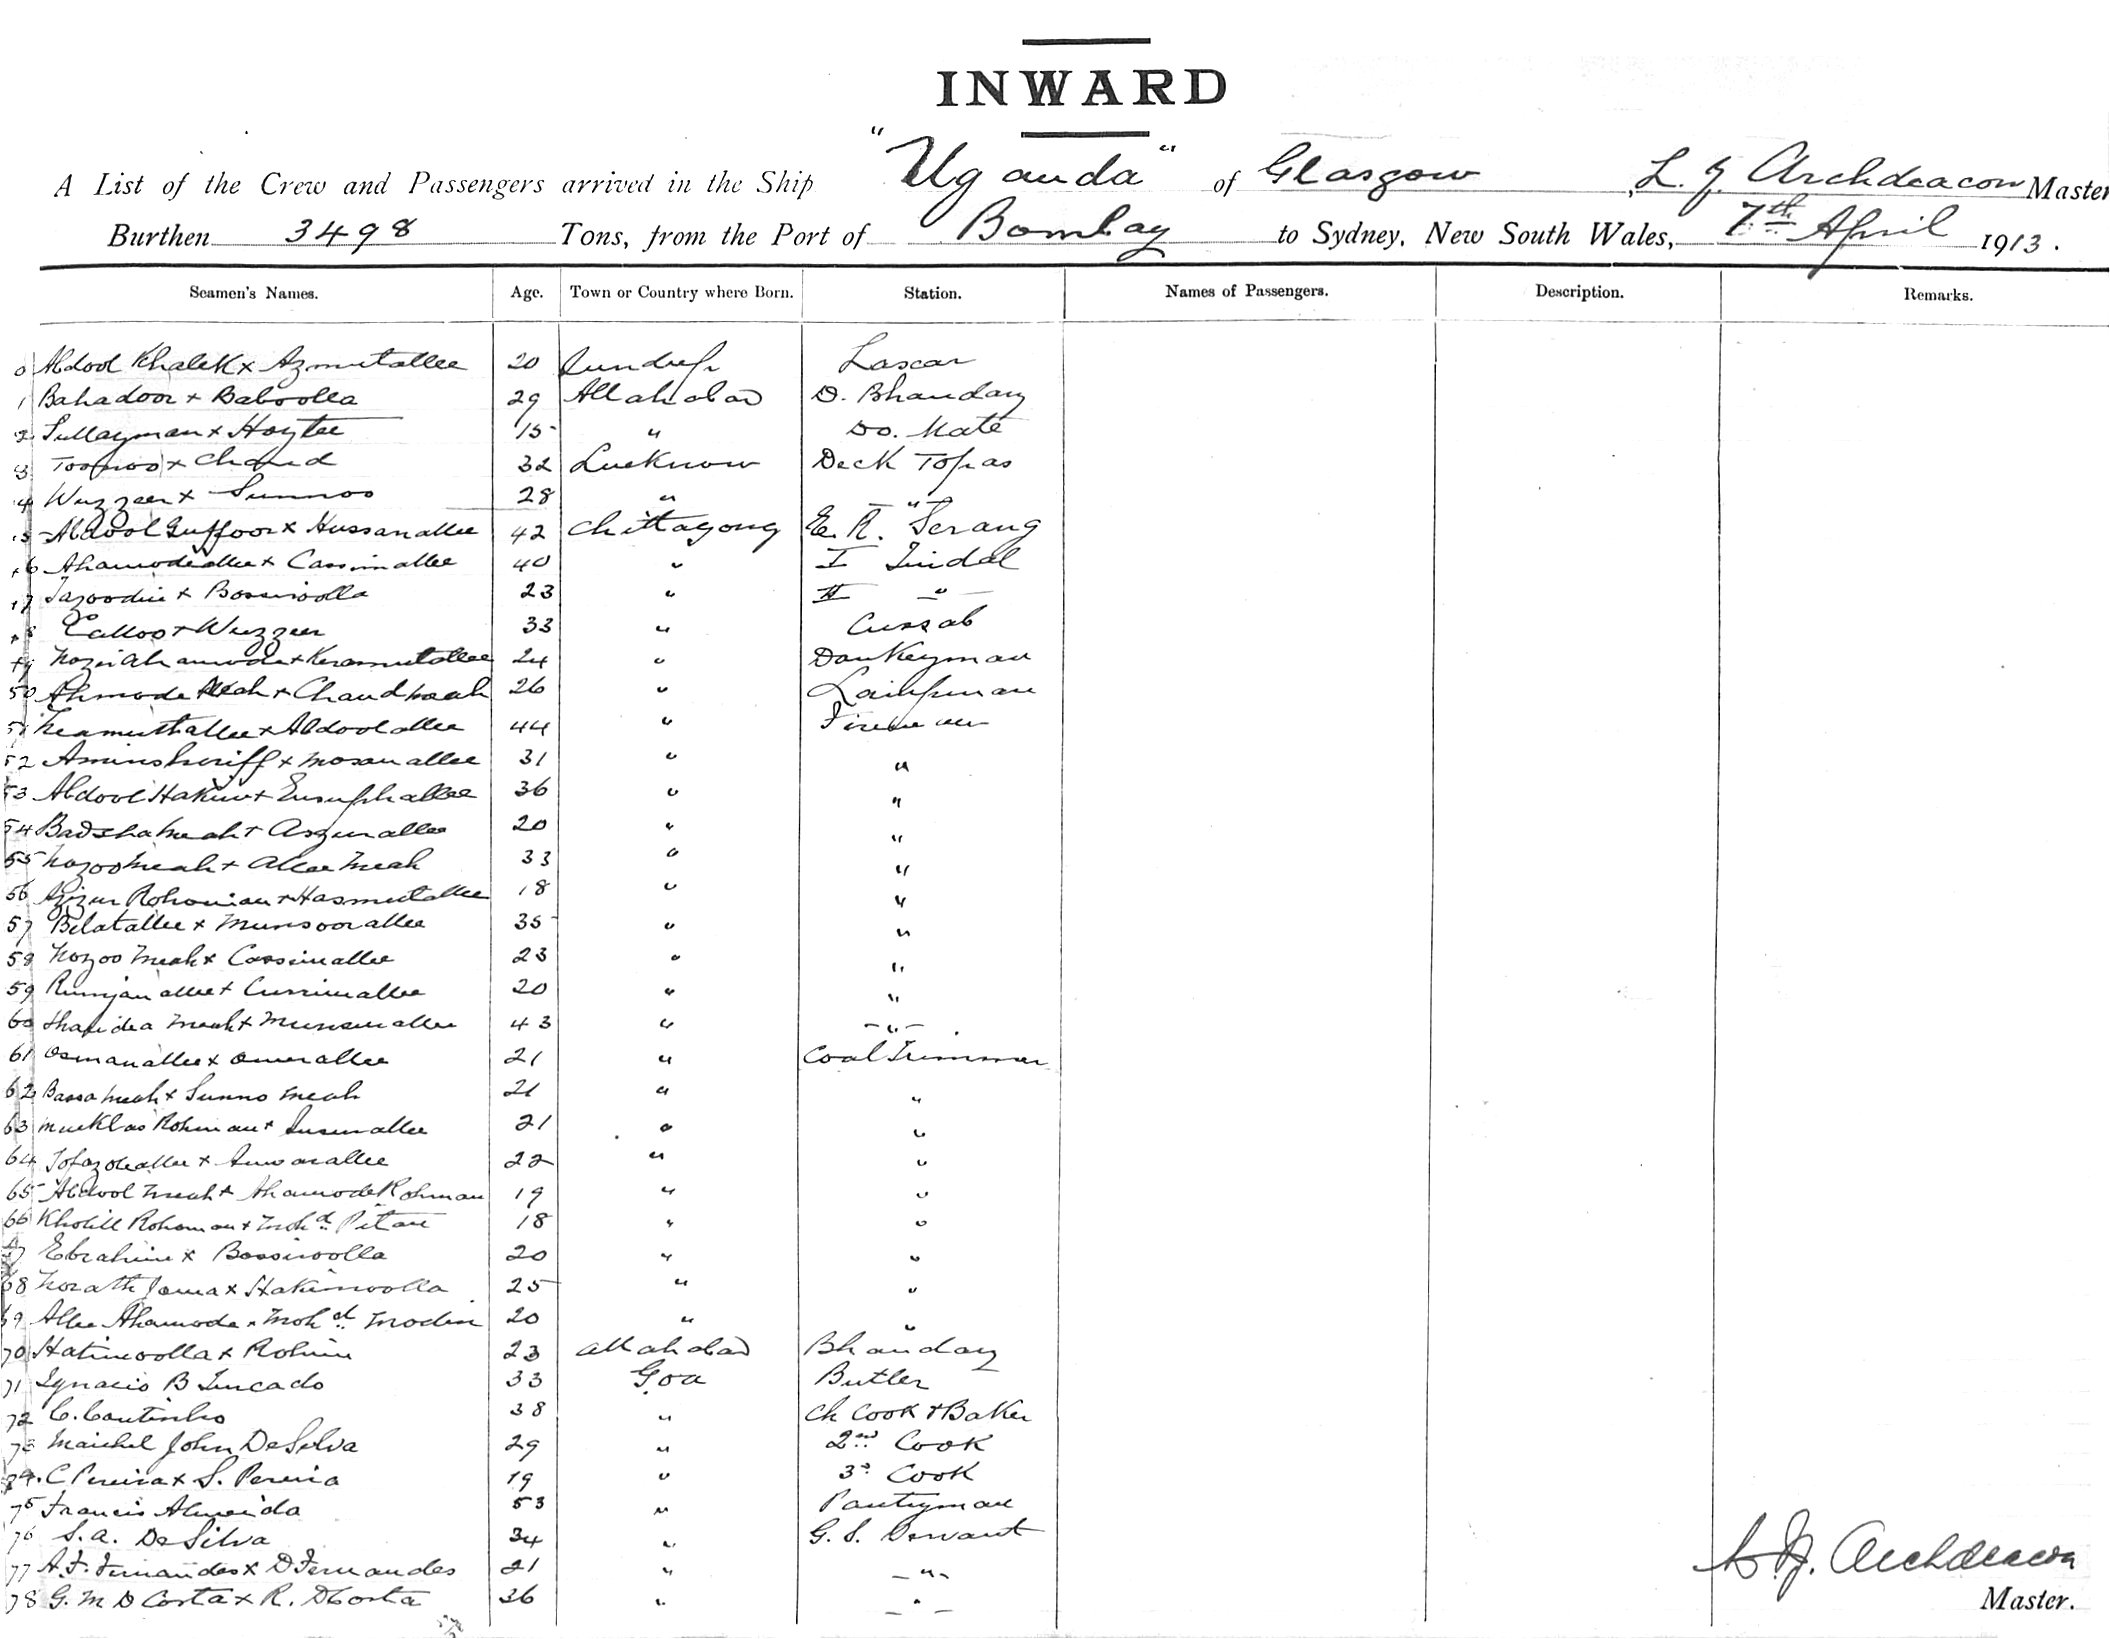 INWARD
A List of the Crew and Passengers arrived in the Ship "Uganda" of Glasgow, L. J. Archdeacon Master
Burthen 3498 Tons, from the Port of Bombay to Sydney, New South Wales, 7th April 1913.
Seamen's Names. Age. Town or Country where Born. Station. Names of Passengers. Description. Remarks.
0 Abdool Khalek x Azmutallee 20 Lascar
1 Bahadoor x Baboolla 29 Allahabad D. Bhandary
2 Sullayman x Hoytee 15 " Do. Mate
3 x Chand 32 Lucknow Deck Topas
4 Wuzzeer x Sunnoo 28 " "
5 Abdool Guffoor x Hussanallee 42 Chittagong E. R. Serang
6 Ahamodeallee x Cassimallee 40 " I Tindal
7 x Bossiroolla 23 " II "
8 Calloo x Wuzzeer 33 " Cussab
9 x Keramutallee 24 " Donkeyman
50 Ahmode Meah x Chand Meah 26 " Lampman
51 x Abdoolallee 44 " Fireman
52 Aminsheriff x Mosanallee 31 " "
53 Abdool Hakim x Eusuphallee 36 " "
54 Badshameah x 20 " "
55 Nozoo Meah x Allee Meah 33 " "
56 Azizur Rohoman x Hasmutallee 18 " "
57 Belatallee x Munsoorallee 35 " "
58 Nozoo Meah x Cassimallee 23 " "
59 Rumjanallee x Currimallee 20 " "
60 Meah x 43 " "
61 Osmanallee x Omerallee 21 " Coal Trimmer
62 Bassa Meah x Sunno Meah 21 " "
63 Rohman x 21 " "
64 x 22 " "
65 Abdool Meah x Ahamode Rohman 19 " "
66 Kholill Rohoman x Mohd. Pitan 18 " "
7 Ebrahim x Bossiroolla 20 " "
68 x Hakimoolla 25 " "
69 Allee Ahamode x Mohd. Modin 20 " "
70 Hatimoolla x Rohim 23 Allahabad Bhandary
71 Ignacio B Furtado 33 Goa Butler
72 C. Coutinho 38 " Ch Cook & Baker
73 Maichel John DeSilva 29 " 2nd Cook
74. C Pereira x S. Pereira 19 " 3rd Cook
75 Francis Almeida 53 " Pantryman
76 S. A. DeSilva 34 " G. S. Servant
77 A. F. Fernandes x D Fernandes 21 " "
78 G. M D Costa x R. DCosta 36 " "
L. J. Archdeacon
Master.